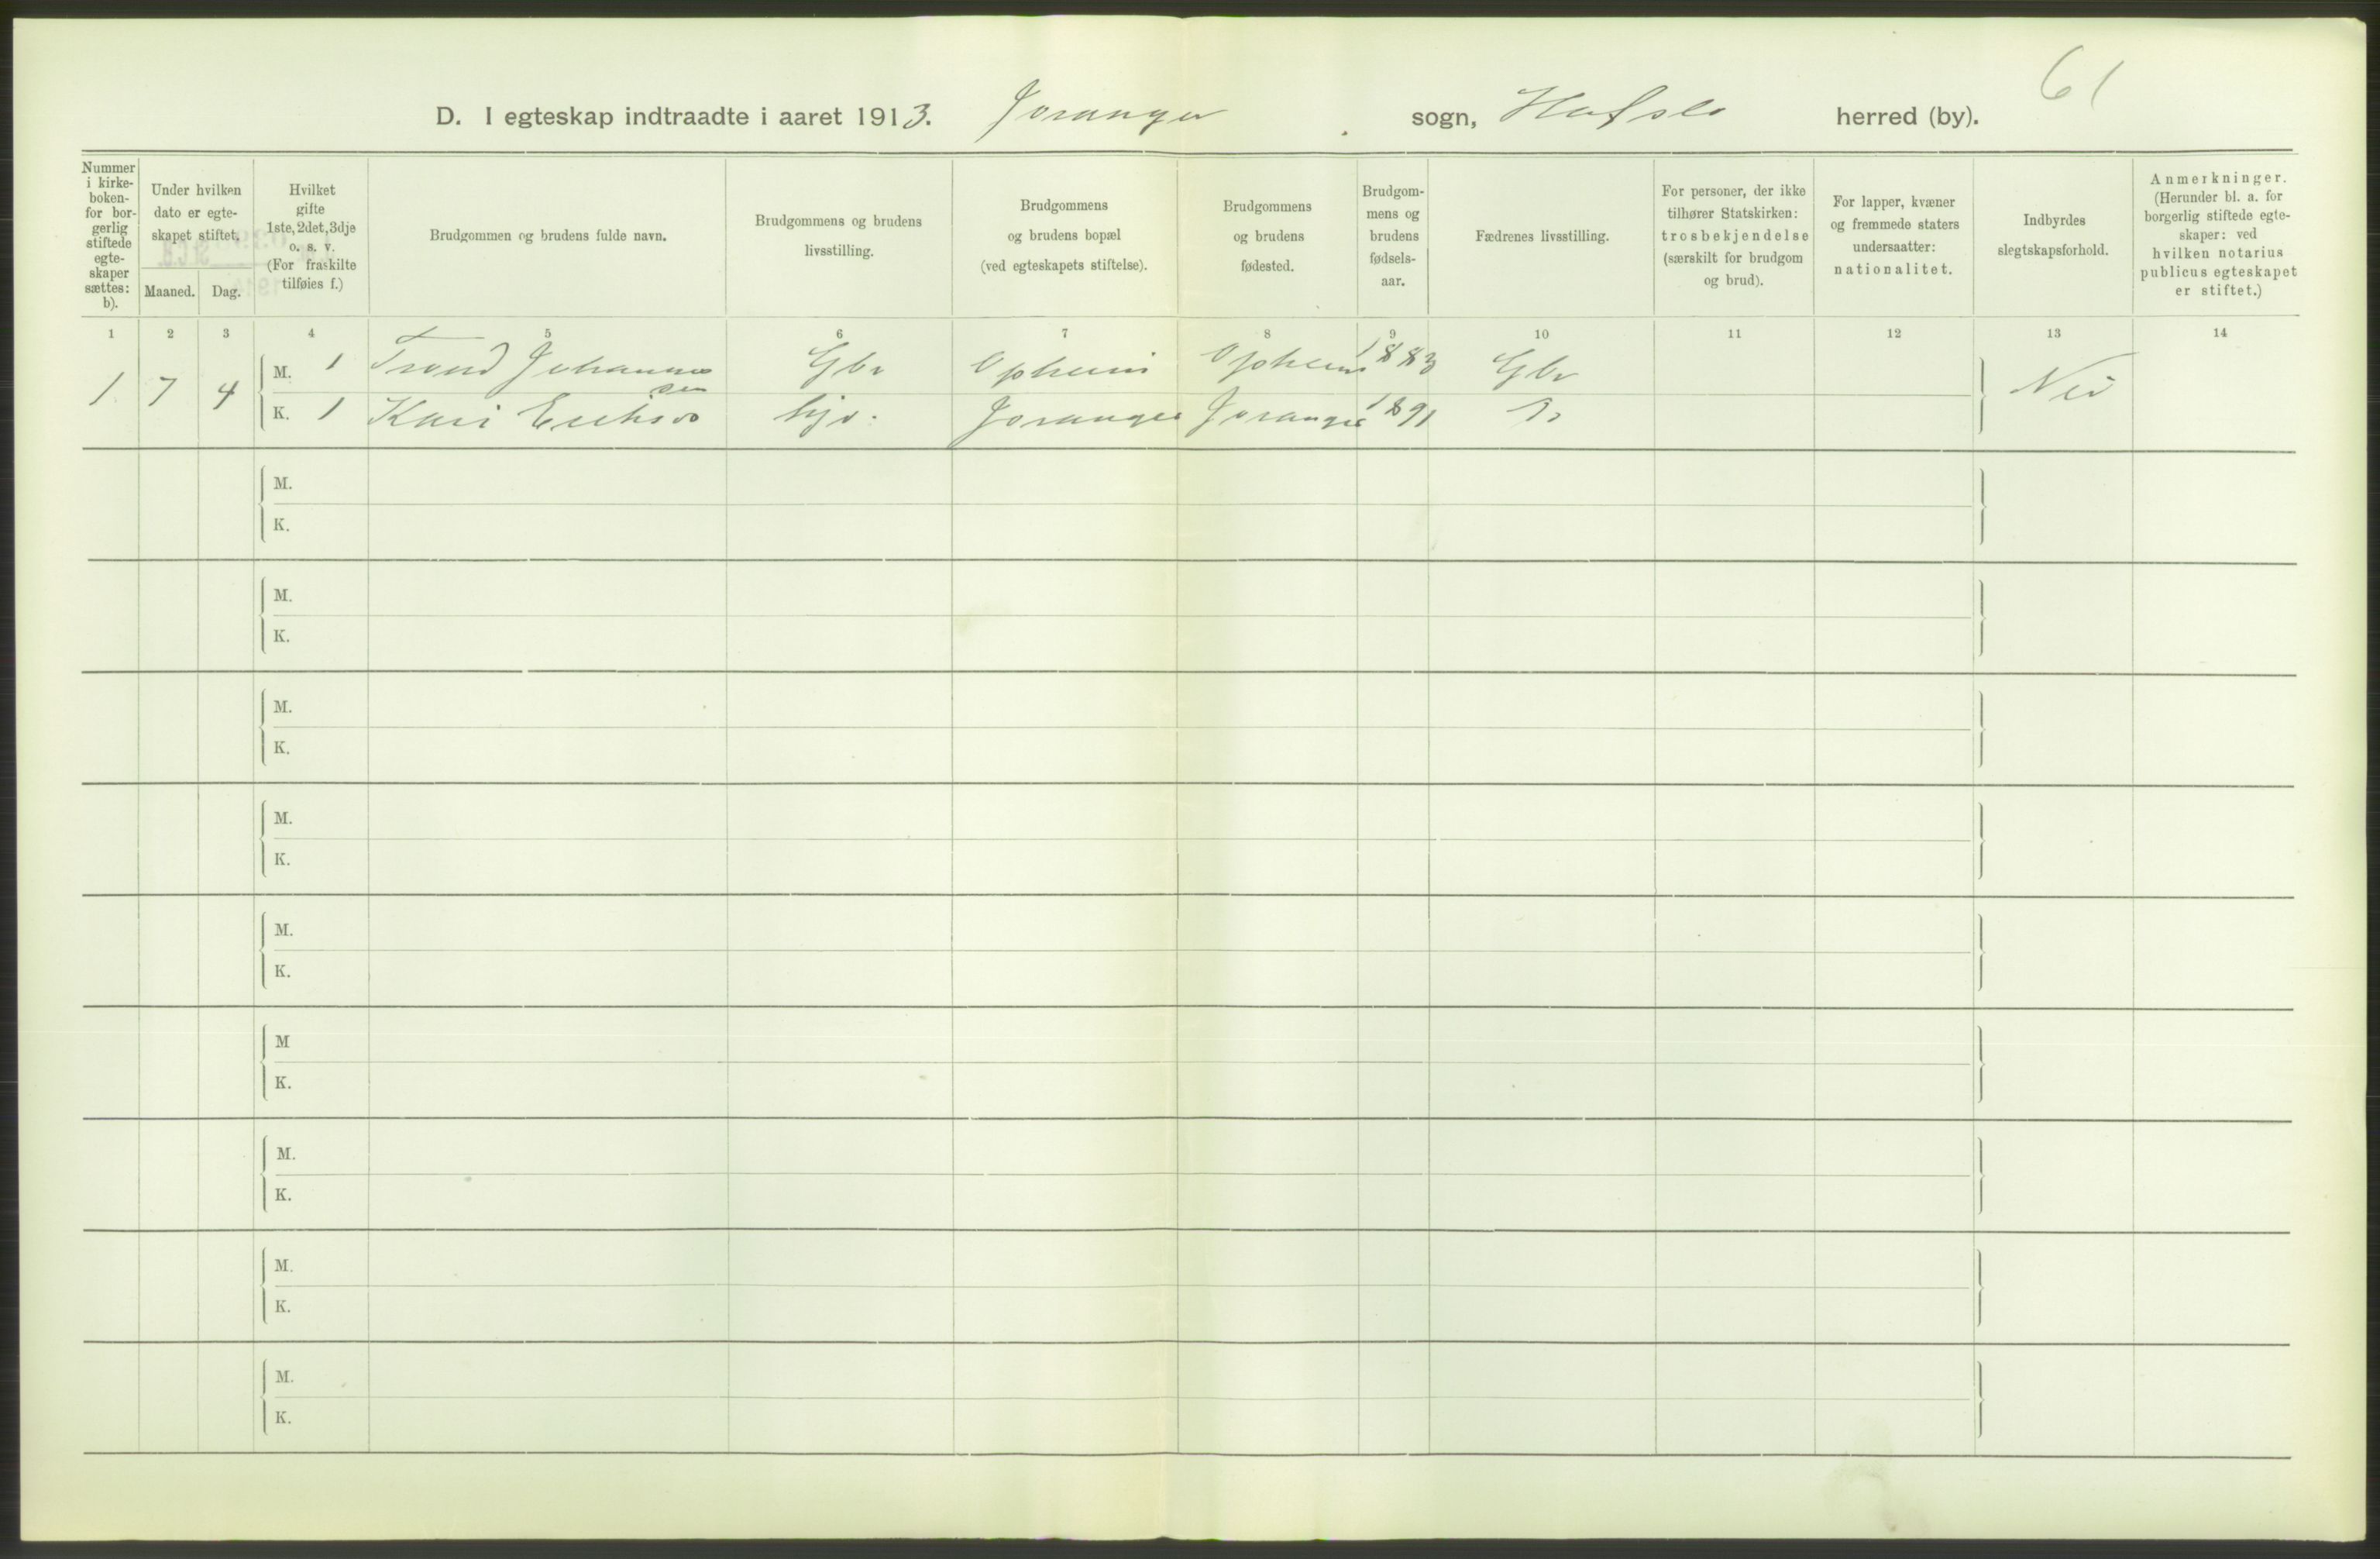 D. I egteskap indtraadte i aaret 1913. Joranger sogn, Hafslo herred (by).
61
Nummer i kirke-boken- for bor-gerlig stiftede egte-skaper sættes: b).
Under hvilken dato er egte-skapet stiftet.
Maaned. Dag.
Hvilket gifte 1ste, 2det, 3dje o. s. v. (For fraskilte tilføies f.)
Brudgommen og brudens fulde navn.
Brudgommens og brudens livsstilling.
Brudgommens og brudens bopæl (ved egteskapets stiftelse).
Brudgommens og brudens fødested.
Brudgom-mens og brudens fødsels-aar.
Fædrenes livsstilling.
For personer, der ikke tilhører Statskirken: trosbekjendelse (særskilt for brudgom og brud).
For lapper, kvæner og fremmede staters undersaatter: nationalitet.
Indbyrdes slegtskapsforhold.
Anmerkninger. (Herunder bl. a. for borgerlig stiftede egte-skaper: ved hvilken notarius publicus egteskapet er stiftet.)
1 2 3 4 5 6 7 8 9 10 11 12 13 14
1 7 4 M. 1 Trond Johannes sen Gbr Opheim Opheim 1883 Gbr Nei
K. 1 Kari Eriksd Joranger Joranger 1891
M.
K.
M.
K.
M.
K.
M.
K.
M.
K.
M
K.
M.
K.
M.
K.
M.
K.